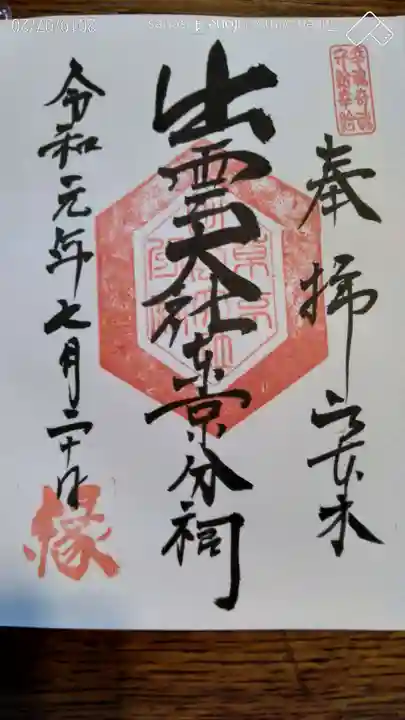 奉拝 六本木
出雲大社東京分祠
令和元年七月二十日
縁
2019/07/20